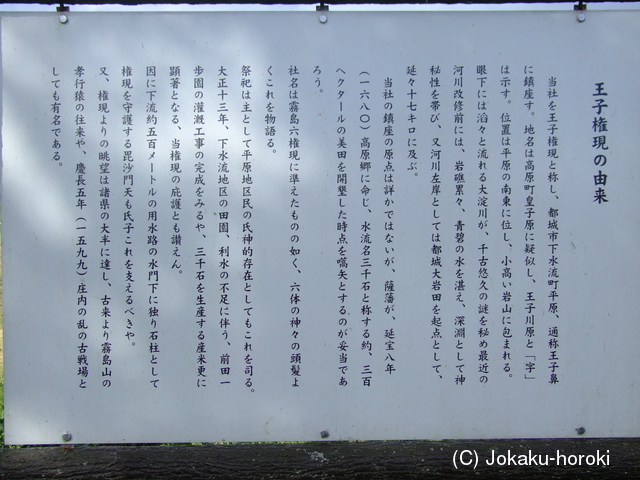 王子権現の由来
当社を王子権現と称し、都城市下水流町平原、通称王子鼻
に鎮座す。地名は高原町皇子原に疑似し、王子川原と「字」
は示す。位置は平原の南東に位し、小高い岩山に包まれる。
眼下には滔々と流れる大淀川が、千古悠久の謎を秘め最近の
河川改修前には、岩礁累々、青碧の水を湛え、深淵として神
秘性を帯び、又河川左岸としては都城大岩田を起点として、
延々十七キロに及ぶ。
当社の鎮座の原点は詳かではないが、薩藩が、延宝八年
(一六八〇)高原郷に命じ、水流名三千石と称する約、三百
ヘクタールの美田を開墾した時点を嚆矢とするのが妥当であ
ろう。
社名は霧島六権現に准えたものの如く、六体の神々の頭髪よ
くこれを物語る。
祭祀は主として平原地区民の氏神的存在としてもこれを司る。
大正十三年、下水流地区の田園、利水の不足に伴う、前田一
歩園の灌漑工事の完成をみるや、三千石を生産する産米更に
顕著となる、当権現の庇護とも讃えん。
因に下流約五百メートルの用水路の水門下に独り石柱として
権現を守護する毘沙門天も氏子これを支えるべきや。
又、権現よりの眺望は諸県の大半に達し、古来より霧島山の
孝行猿の往来や、慶長五年(一五九九)庄内の乱の古戦場と
しても有名である。
(C) Jokaku-horoki